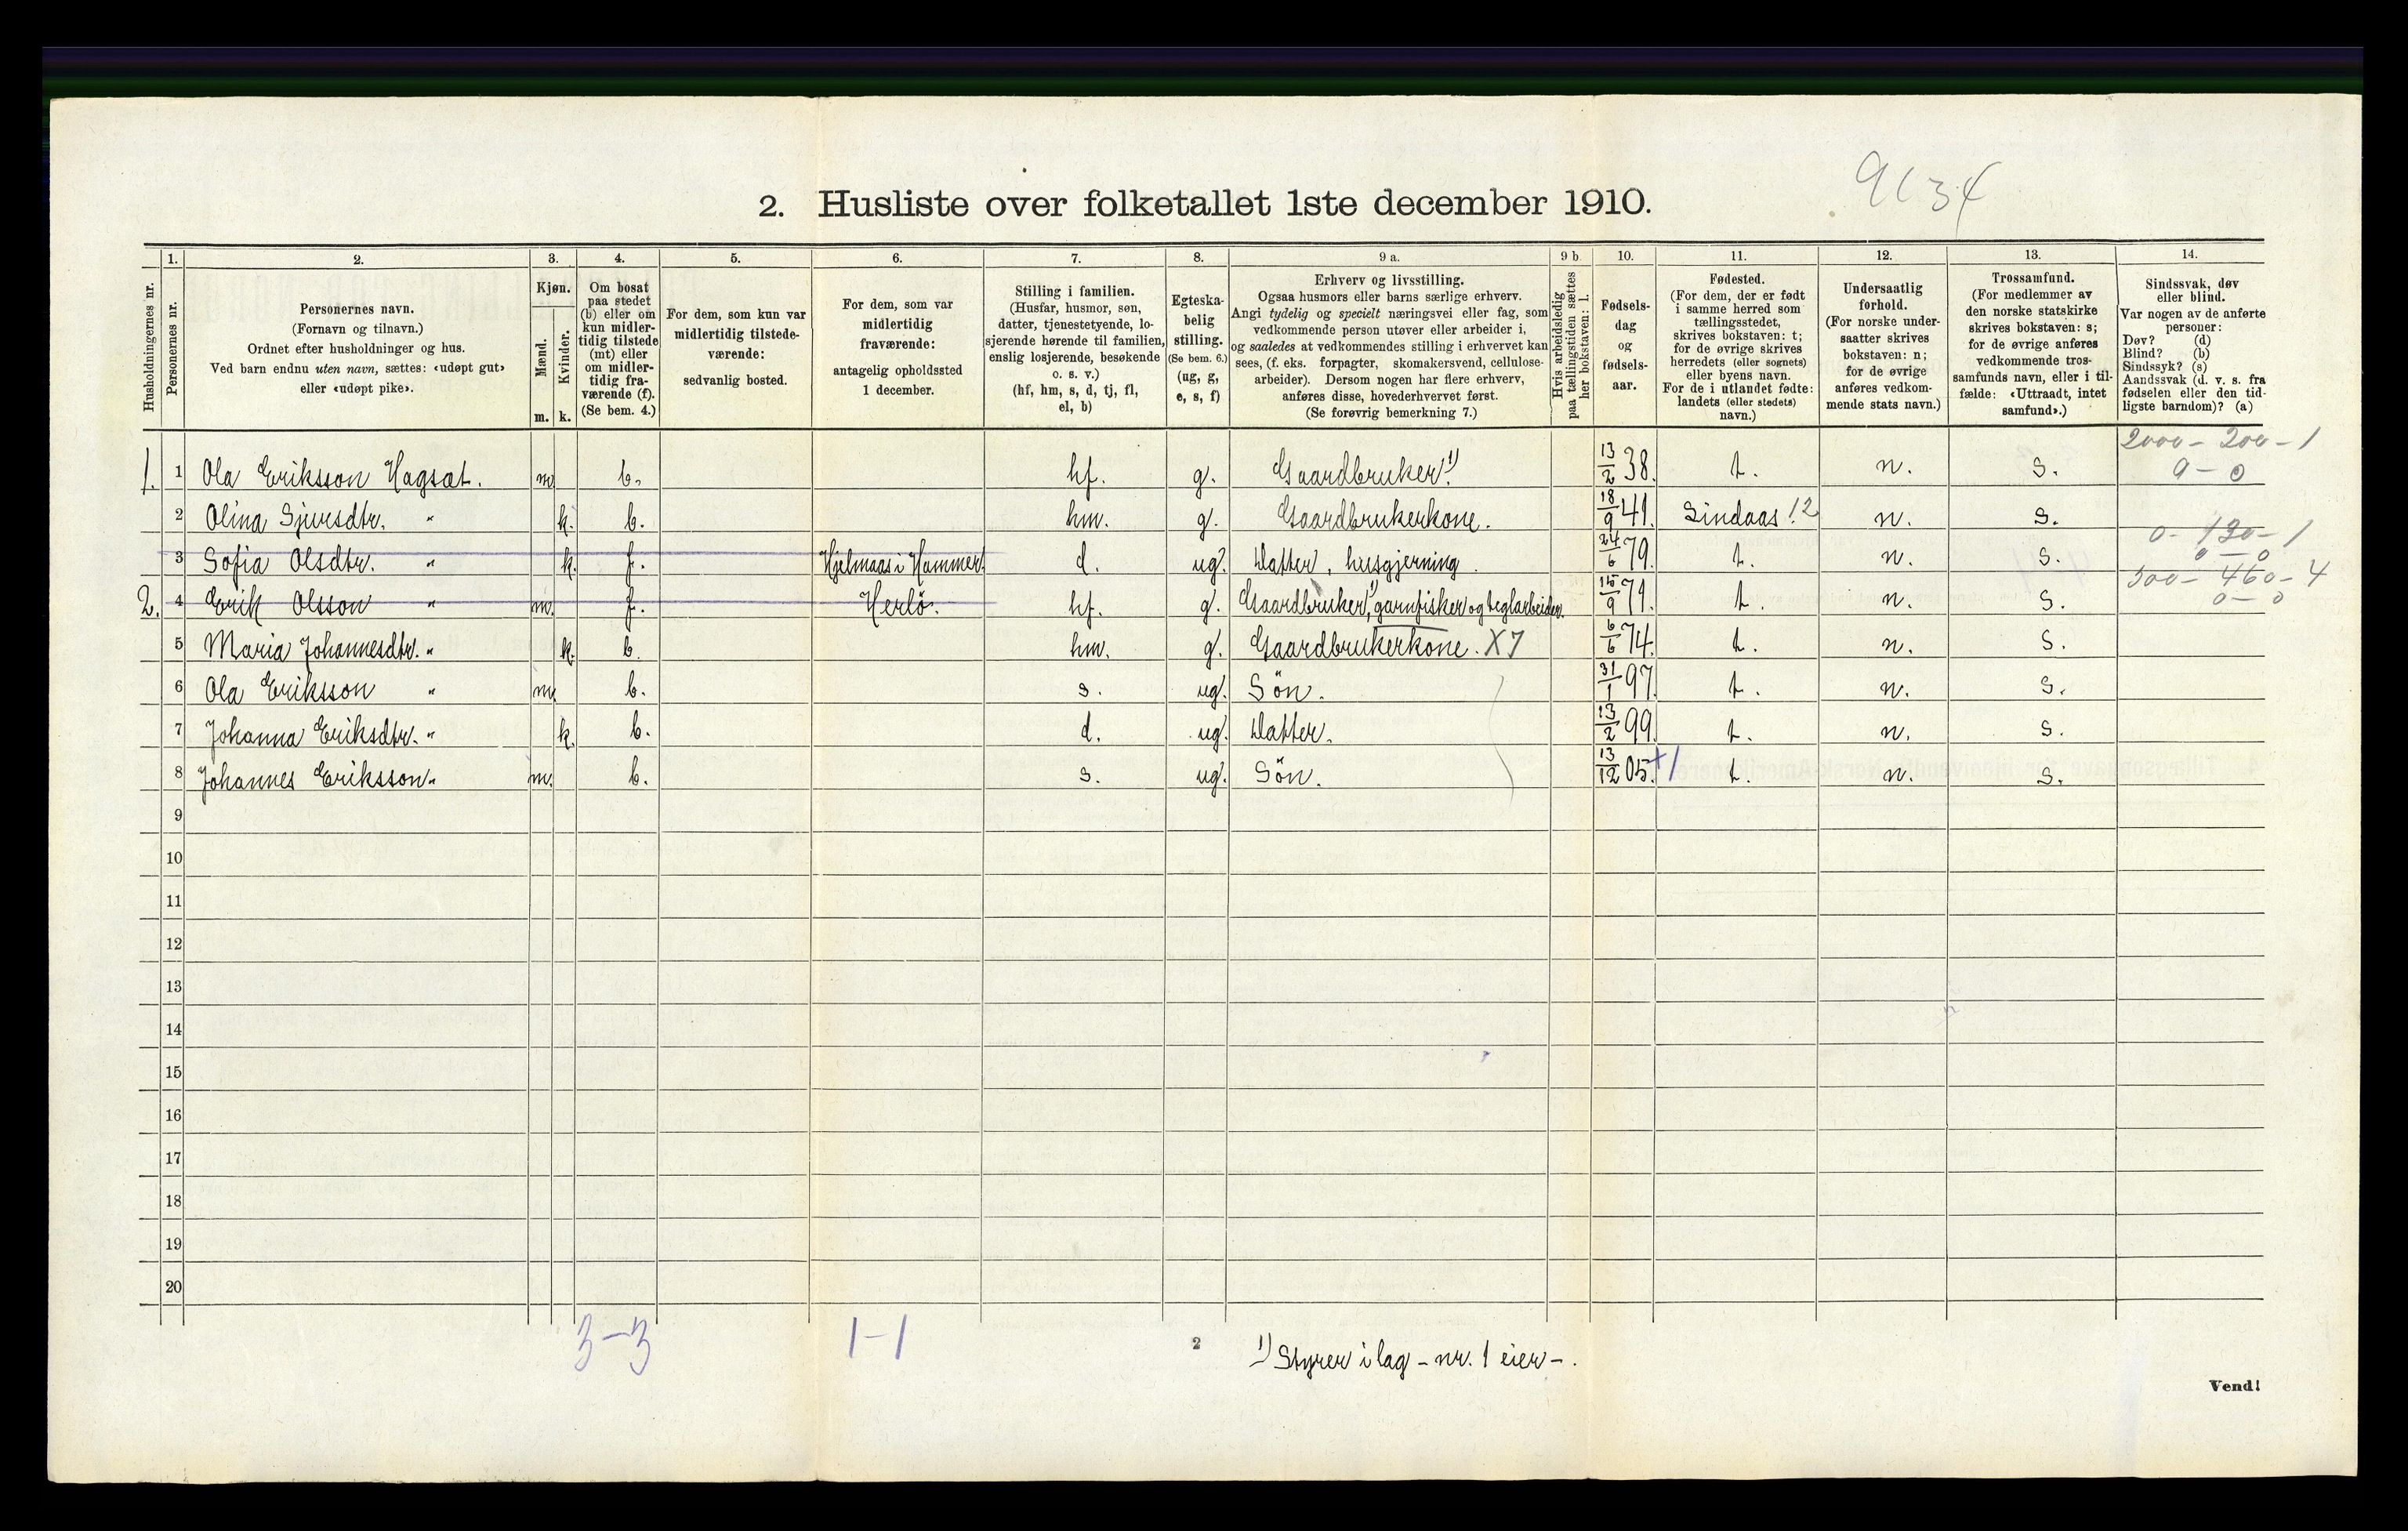 9134
2. Husliste over folketallet 1ste december 1910.
Husholdningernes nr. | 1. Personernes nr. | 2. Personernes navn. (Fornavn og tilnavn.) Ordnet efter husholdninger og hus. Ved barn endnu uten navn, sættes: «udøpt gut» eller «udøpt pike». | 3. Kjøn. Mænd. m. Kvinder. k. | 4. Om bosat paa stedet (b) eller om kun midler-tidig tilstede (mt) eller om midler-tidig fra-værende (f). (Se bem. 4.) | 5. For dem, som kun var midlertidig tilstede-værende: sedvanlig bosted. | 6. For dem, som var midlertidig fraværende: antagelig opholdssted 1 december. | 7. Stilling i familien. (Husfar, husmor, søn, datter, tjenestetyende, lo-sjerende hørende til familien, enslig losjerende, besøkende o. s. v.) (hf, hm, s, d, tj, fl, el, b) | 8. Egteska-belig stilling. (Se bem. 6.) (ug, g, e, s, f) | 9 a. Erhverv og livsstilling. Ogsaa husmors eller barns særlige erhverv. Angi tydelig og specielt næringsvei eller fag, som vedkommende person utøver eller arbeider i, og saaledes at vedkommendes stilling i erhvervet kan sees, (f. eks. forpagter, skomakersvend, cellulose-arbeider). Dersom nogen har flere erhverv, anføres disse, hovederhvervet først. (Se forøvrig bemerkning 7.) | 9 b. Hvis arbeidsledig paa tællingstiden sættes her bokstaven: l. | 10. Fødsels-dag og fødsels-aar. | 11. Fødested. (For dem, der er født i samme herred som tællingsstedet, skrives bokstaven: t; for de øvrige skrives herredets (eller sognets) eller byens navn. For de i utlandet fødte: landets (eller stedets) navn.) | 12. Undersaatlig forhold. (For norske under-saatter skrives bokstaven: n; for de øvrige anføres vedkom-mende stats navn.) | 13. Trossamfund. (For medlemmer av den norske statskirke skrives bokstaven: s; for de øvrige anføres vedkommende tros-samfunds navn, eller i til-fælde: «Uttraadt, intet samfund».) | 14. Sindssvak, døv eller blind. Var nogen av de anførte personer: Døv? (d) Blind? (b) Sindssyk? (s) Aandssvak (d. v. s. fra fødselen eller den tid-ligste barndom)? (a)
1. 1 Ola Eriksson Hagsæt. m. b. hf. g. Gaardbruker¹) 13/2 38. t. n. s. 2000 - 200 - 1 a - 0
2 Olina Sjursdtr. " k. b. hm. g. Gaardbrukerkone. 18/9 41. Lindaas 12 n. s.
3 Sofia Olsdtr. " k. f. Hjelmaas i Hammer. d. ug. Datter, husgjerning. 24/6 79. t. n. s. 0 - 130 - 1 0 - 0
2. 4 Erik Olsson " m. f. Herlö. hf. g. Gaardbruker,¹) garnfisker og teglarbeider. 15/9 71. t. n. s. 300 - 460 - 4 0 - 0
5 Maria Johannesdtr. " k. b. hm. g. Gaardbrukerkone. X7 6/6 74. t. n. s.
6 Ola Eriksson " m. b. s. ug. Sön. 31/1 97. t. n. s.
7 Johanna Eriksdtr. " k. b. d. ug. Datter. 13/2 99. t. n. s.
8 Johannes Eriksson " m. b. s. ug. Sön. 13/12 05. +1 t. n. s.
9
10
11
12
13
14
15
16
17
18
19
20
3-3 1-1 2 ¹) Styrer i lag - nr. 1 eier - .
Vend!